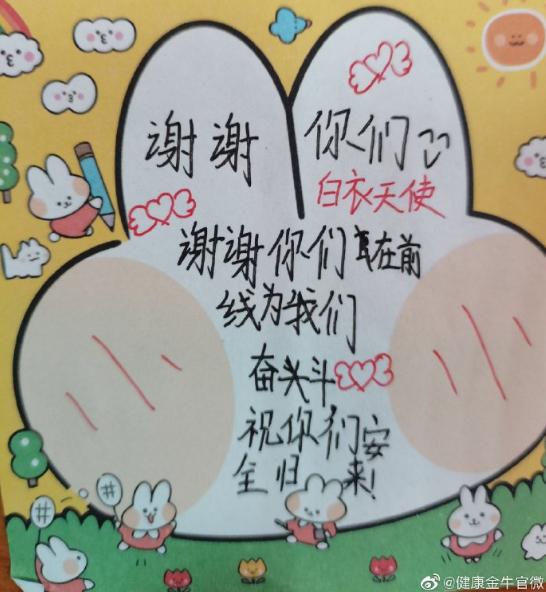 谢谢 你们
白衣天使
谢谢你们在前
线为我们
奋斗
祝你们安
全归来!
@健康金牛官微